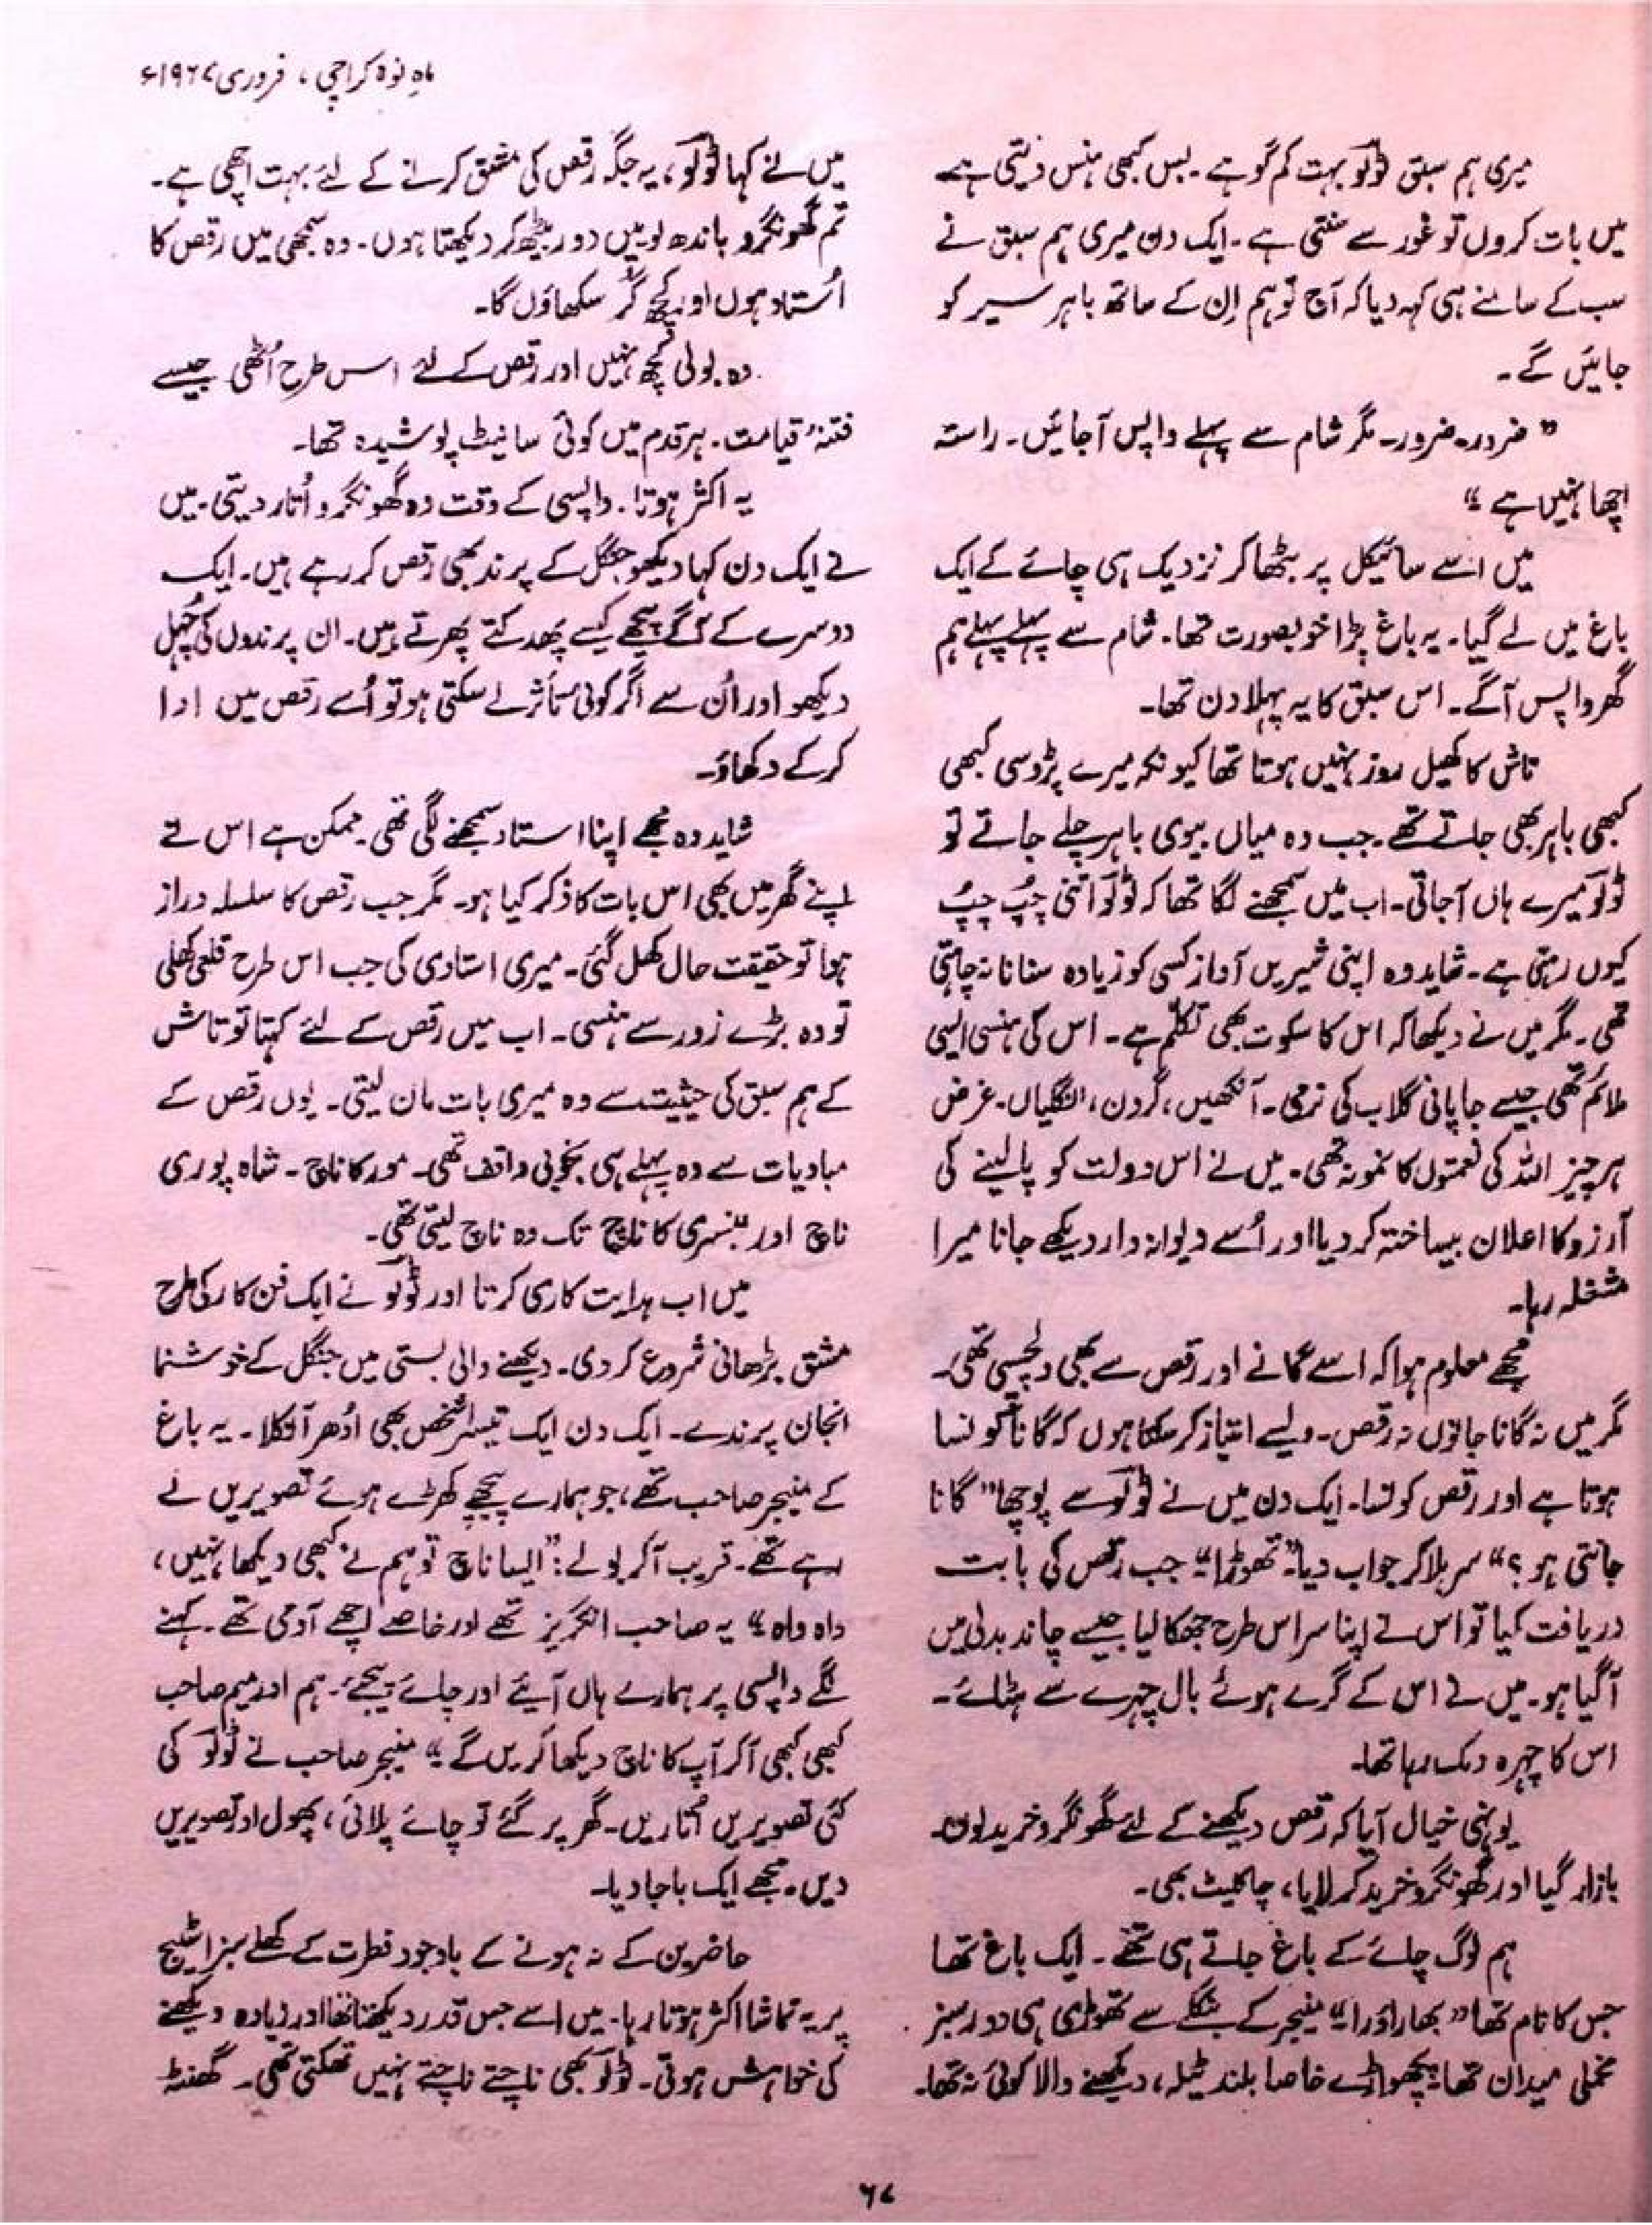 ماہِ نو، کراچی، فروری ۱۹۶۷ء
میری ہم سبق ٹولو بہت کم گو ہے۔ بس کبھی ہنس دیتی ہے
میں بات کروں تو غور سے سنتی ہے۔ ایک دن میری ہم سبق نے
سب کے سامنے ہی کہہ دیا کہ آج تو ہم اِن کے ساتھ باہر سیر کو
جائیں گے۔
"ضرور۔ ضرور۔ مگر شام سے پہلے واپس آجائیں۔ راستہ
اچھا نہیں ہے"
میں اُسے سائیکل پر بٹھا کر نزدیک ہی چائے کے ایک
باغ میں لے گیا۔ یہ باغ بڑا خوبصورت تھا۔ شام سے پہلے پہلے ہم
گھر واپس آگئے۔ اس سبق کا یہ پہلا دن تھا۔
تاش کا کھیل روز نہیں ہوتا تھا کیونکہ میرے پڑوسی کبھی
کبھی باہر بھی جاتے تھے۔ جب وہ میاں بیوی باہر چلے جاتے تو
ٹولو میرے ہاں آجاتی۔ اب میں سمجھنے لگا تھا کہ ٹولو اتنی چپُ چپُ
کیوں رہتی ہے۔ شاید وہ اپنی شیریں آواز کسی کو زیادہ سنانا نہ چاہتی
تھی۔ مگر میں نے دیکھا کہ اس کا سکوت بھی تکلّم ہے۔ اس کی ہنسی ایسی
ملائم تھی جیسے جاپانی گلاب کی نرمی۔ آنکھیں، گردن، انگلیاں۔ غرض
ہر چیز اللہ کی نعمتوں کا نمونہ تھی۔ میں نے اس دولت کو پالینے کی
آرزو کا اعلان بیساختہ کر دیا اور اُسے دیوانہ وار دیکھے جانا میرا
مشغلہ رہا۔
مجھے معلوم ہوا کہ اسے گانے اور رقص سے بھی دلچسپی تھی۔
مگر میں نہ گانا جانوں نہ رقص۔ ویسے امتیاز کر سکتا ہوں کہ گانا کونسا
ہوتا ہے اور رقص کونسا۔ ایک دن میں نے ٹولو سے پوچھا "گانا
جانتی ہو؟" سر ہلا کر جواب دیا "تھوڑا"۔ جب رقص کی بابت
دریافت کیا تو اس نے اپنا سر اس طرح جھکا لیا جیسے چاند بدلی میں
آگیا ہو۔ میں نے اس کے گرے ہوئے بال چہرے سے ہٹائے۔
اس کا چہرہ دمک رہا تھا۔
یونہی خیال آیا کہ رقص دیکھنے کے لئے گھونگرو خرید لوں۔
بازار گیا اور گھونگرو خرید کر لایا، چاکلیٹ بھی۔
ہم لوگ چائے کے باغ جاتے ہی تھے۔ ایک باغ تھا
جس کا نام تھا "بھاراؤرا"۔ منیجر کے بنگلے سے تھوڑی ہی دور سبز
مخملی میدان تھا۔ پچھواڑے خاصا بلند ٹیلہ، دیکھنے والا کوئی نہ تھا۔
میں نے کہا ٹولو، یہ جگہ رقص کی مشق کرنے کے لئے بہت اچھی ہے۔
تم گھونگرو باندھ لو میں دور بیٹھ کر دیکھتا ہوں۔ وہ سمجھی میں رقص کا
اُستاد ہوں اور کچھ گُر سکھاؤں گا۔
وہ بولی کچھ نہیں اور رقص کے لئے اس طرح اُٹھی جیسے
فتنۂ قیامت۔ ہر قدم میں کوئی سانیٹ پوشیدہ تھا۔
یہ اکثر ہوتا۔ واپسی کے وقت وہ گھونگرو اُتار دیتی۔ میں
نے ایک دن کہا دیکھو جنگل کے پرند بھی رقص کر رہے ہیں۔ ایک
دوسرے کے آگے پیچھے کیسے پھدکتے پھرتے ہیں۔ ان پرندوں کی چُہل
دیکھو اور اُن سے اگر کوئی تأثر لے سکتی ہو تو اُسے رقص میں ادا
کر کے دکھاؤ۔
شاید وہ مجھے اپنا استاد سمجھنے لگی تھی۔ ممکن ہے اس نے
اپنے گھر میں بھی اس بات کا ذکر کیا ہو۔ مگر جب رقص کا سلسلہ دراز
ہوا تو حقیقت حال کھل گئی۔ میری استادی کی جب اس طرح قلعی کھلی
تو وہ بڑے زور سے ہنسی۔ اب میں رقص کے لئے کہتا تو تاش
کے ہم سبق کی حیثیت سے وہ میری بات مان لیتی۔ یوں رقص کے
مبادیات سے وہ پہلے ہی بخوبی واقف تھی۔ مور کا ناچ۔ شاہ پوری
ناچ اور بنسری کا ناچ تک وہ ناچ لیتی تھی۔
میں اب ہدایت کاری کرتا اور ٹولو نے ایک فن کار کی طرح
مشق بڑھانی شروع کر دی۔ دیکھنے والی بستی میں جنگل کے خوشنما
انجان پرندے۔ ایک دن ایک تیسرا شخص بھی اُدھر آنکلا۔ یہ باغ
کے منیجر صاحب تھے، جو ہمارے پیچھے کھڑے ہوئے تصویریں لے
رہے تھے۔ قریب آکر بولے: "ایسا ناچ تو ہم نے کبھی دیکھا نہیں،
واہ واہ" یہ صاحب انگریز تھے اور خاصے اچھے آدمی تھے۔ کہنے
لگے واپسی پر ہمارے ہاں آئیے اور چائے پیجئے۔ ہم اور میم صاحب
کبھی کبھی آکر آپ کا ناچ دیکھا کریں گے" منیجر صاحب نے ٹولو کی
کئی تصویریں اُتاریں۔ گھر پر گئے تو چائے پلائی، پھول اور تصویریں
دیں۔ مجھے ایک باجا دیا۔
حاضرین کے نہ ہونے کے باوجود فطرت کے کھلے سبز اسٹیج
پر یہ تماشا اکثر ہوتا رہا۔ میں اسے جس قدر دیکھتا تھا اور زیادہ دیکھنے
کی خواہش ہوتی۔ ٹولو بھی ناچتے ناچتے نہیں تھکتی تھی۔ گھنٹہ
۶۷